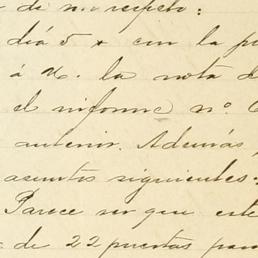 de n. respeto:
día 5 x con la
á M. la nota
el informe nº.
anterior. Además,
asuntos siguientes:
Parece ser que este
de 22 puertas para